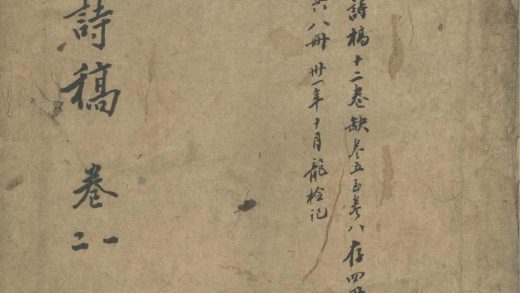 詩稿十二卷缺卷五至卷八存四
八冊 卅一年十月龍檢記
詩稿 卷
一二